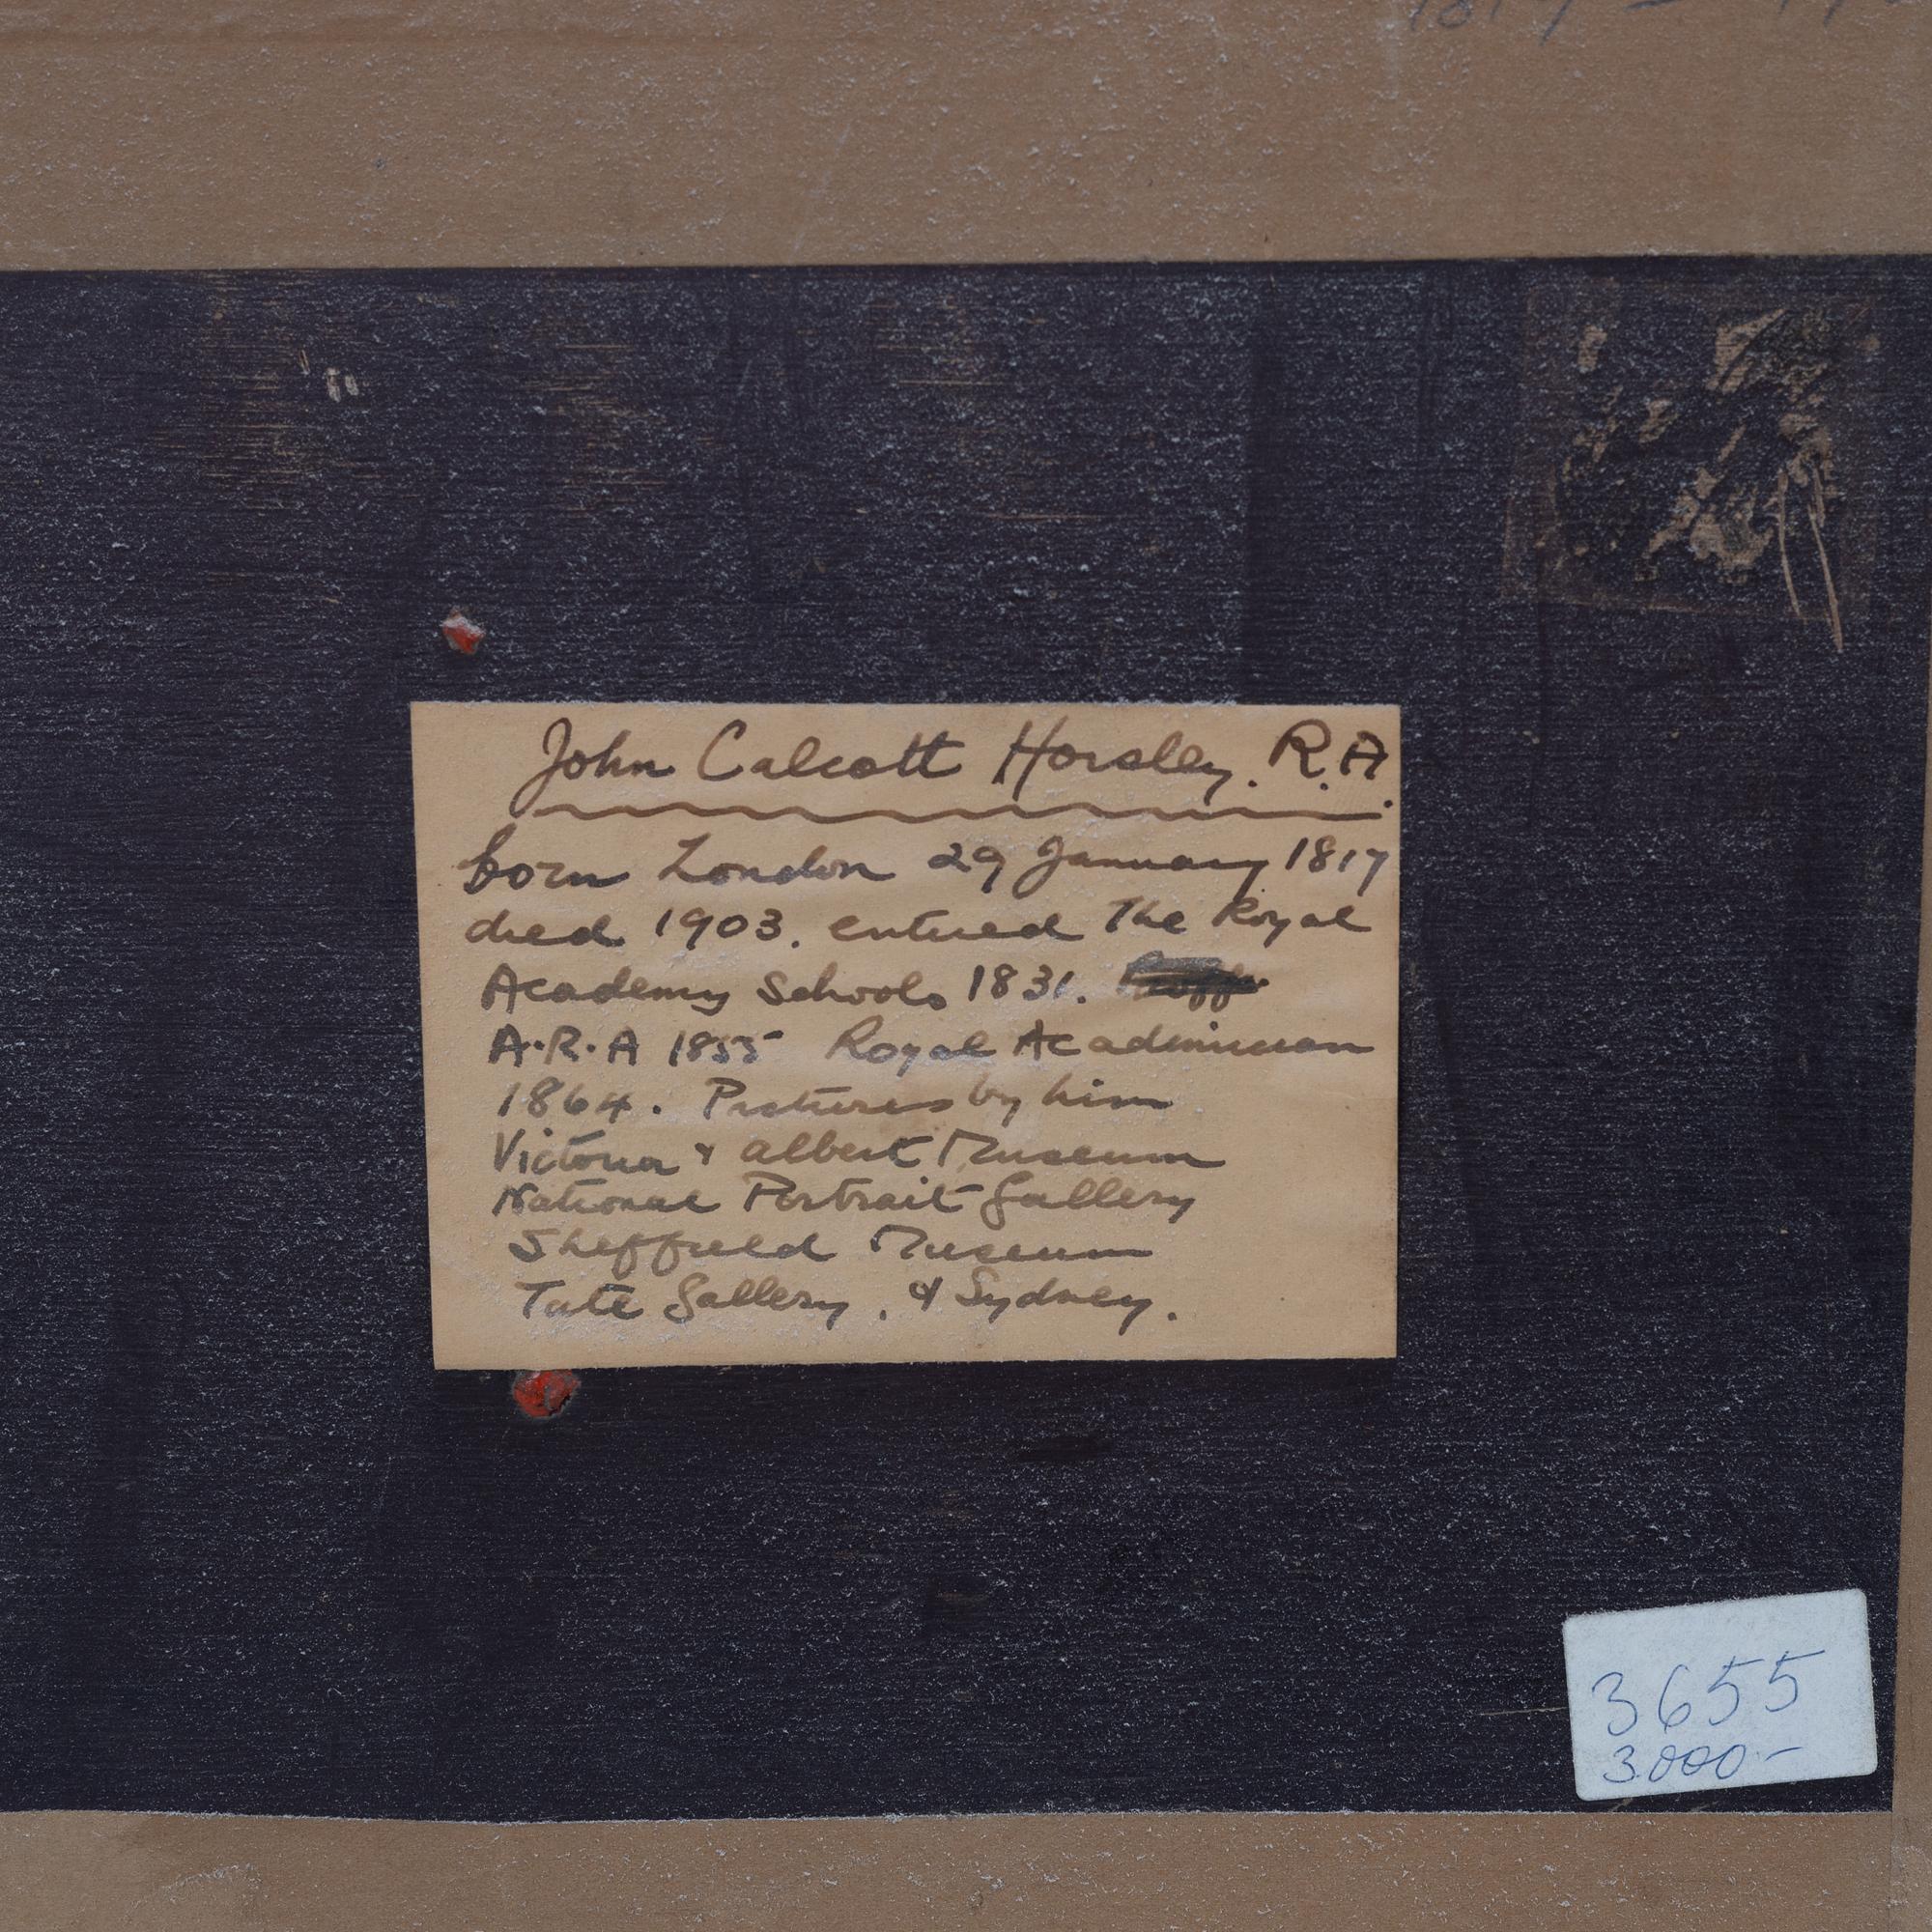 John Calcott Horsley. R.A.
born London 29 January 1817
died 1903. entered The Royal
Academy Schools 1831.
A.R.A 1855 Royal Academician
1864. Pictures by him
Victoria & Albert Museum
National Portrait Gallery
Sheffield Museum
Tate Gallery. & Sydney.
3655
3.000-